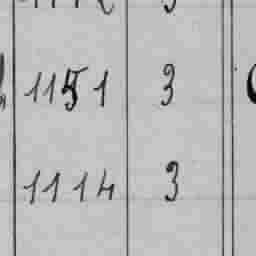 1151 3
1114 3